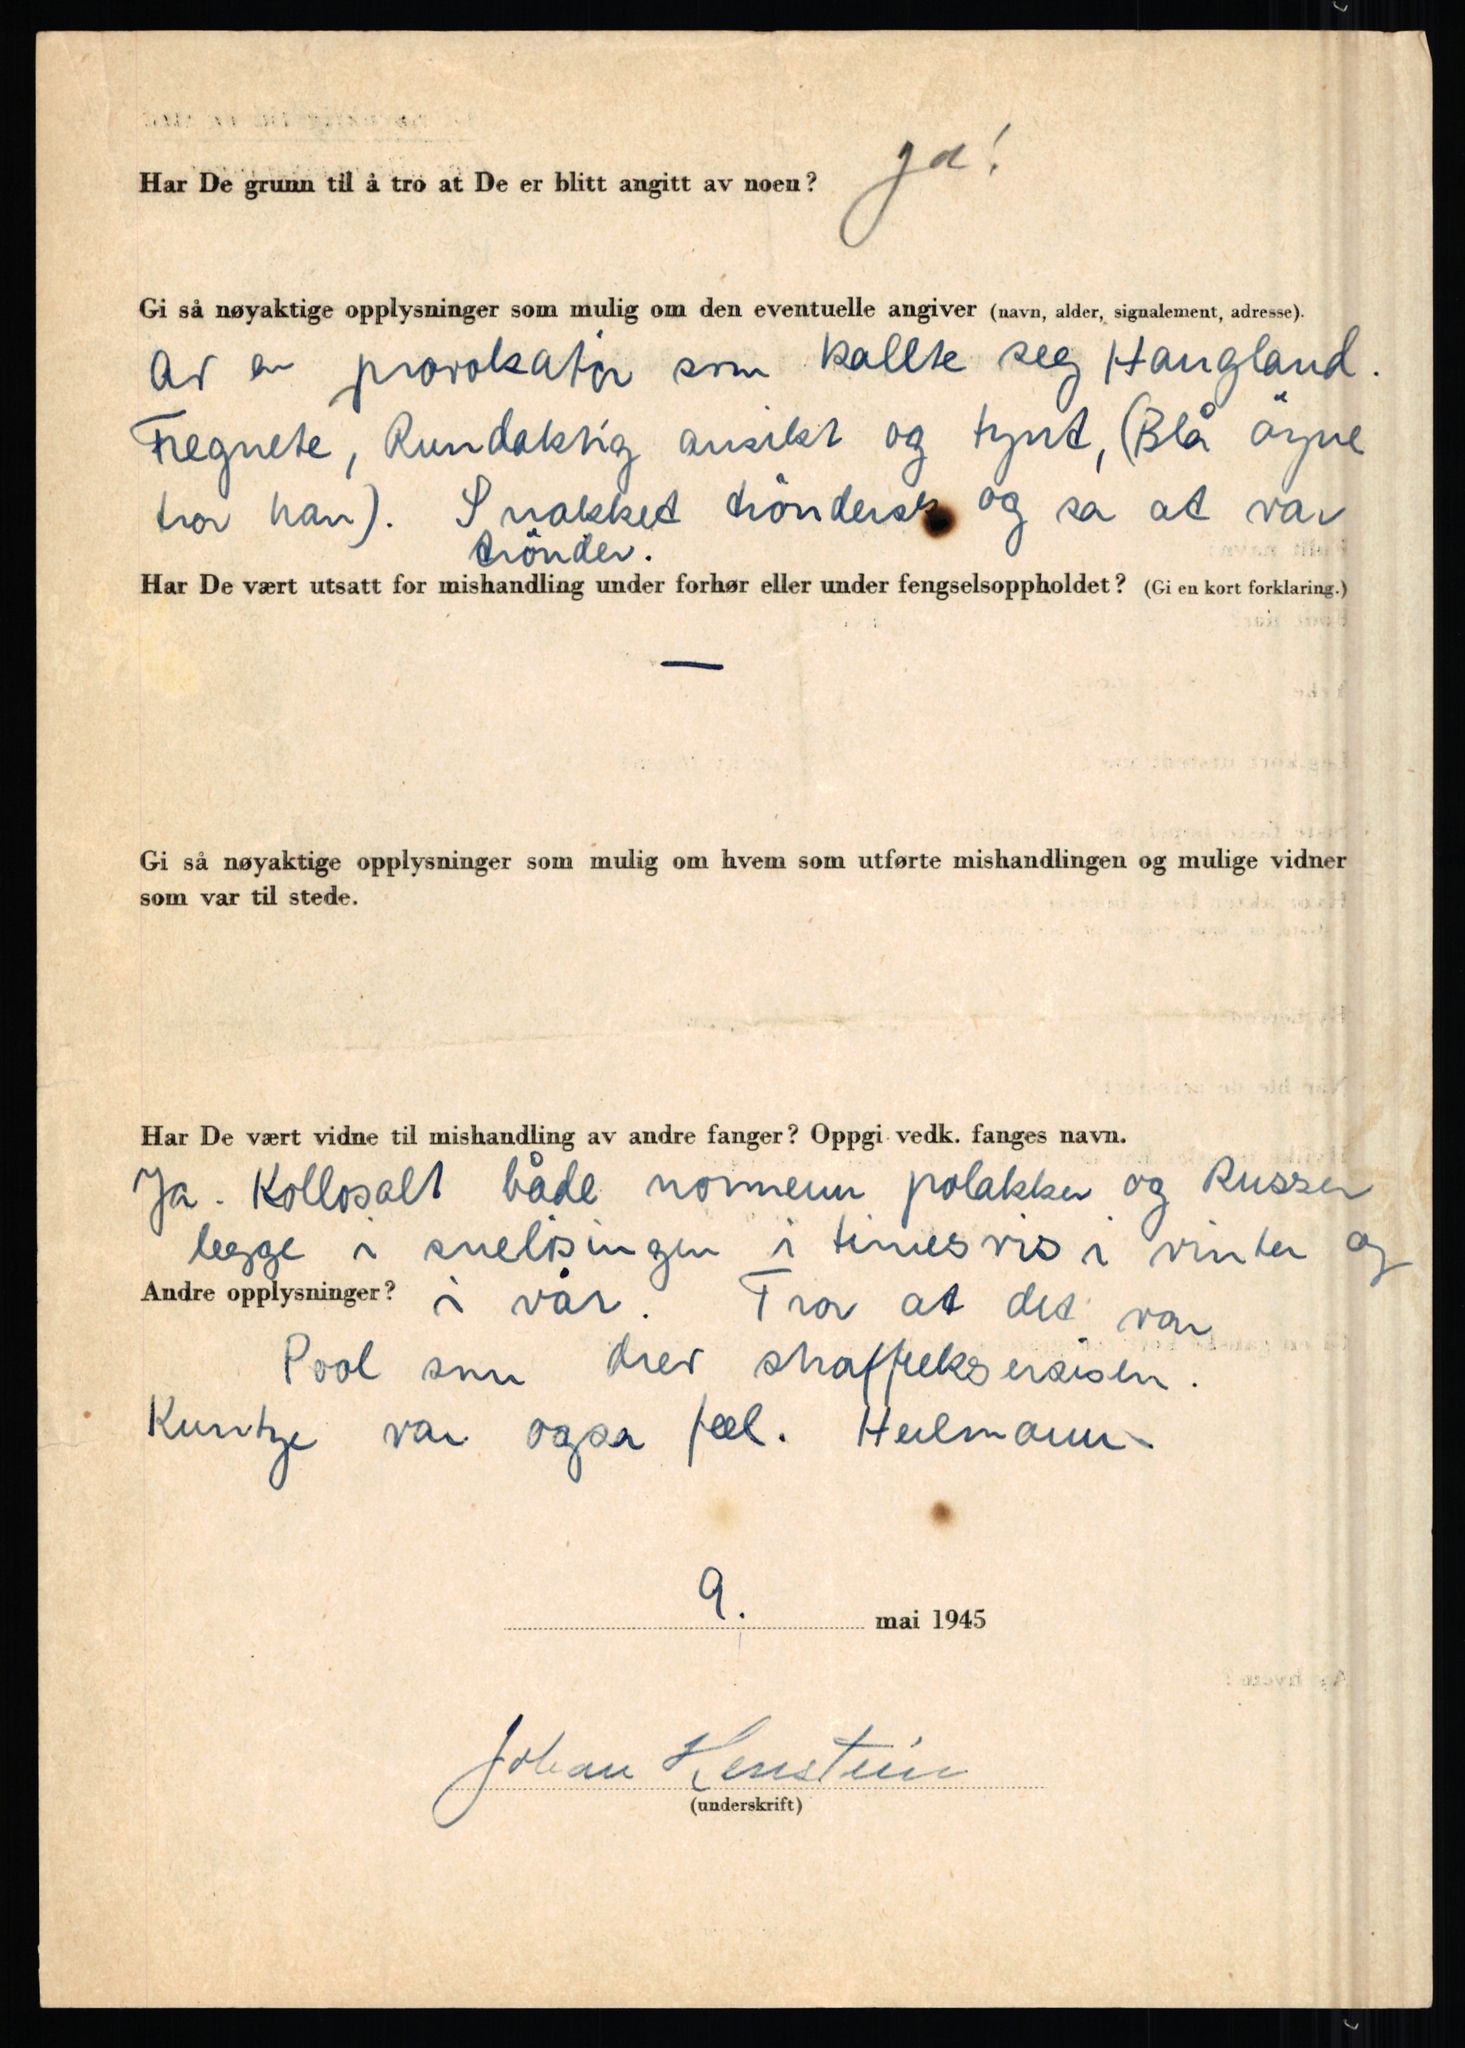 Har De grunn til å tro at De er blitt angitt av noen? Ja!
Gi så nøyaktige opplysninger som mulig om den eventuelle angiver (navn, alder, signalement, adresse).
Av en provokatør som kallte seg Haugland.
Fregnete, Rundaktig ansikt og tynt, (Blå öyne
tror han). Snakket tröndersk og sa at var
trönder.
Har De vært utsatt for mishandling under forhør eller under fengselsoppholdet? (Gi en kort forklaring.)
—
Gi så nøyaktige opplysninger som mulig om hvem som utførte mishandlingen og mulige vidner
som var til stede.
Har De vært vidne til mishandling av andre fanger? Oppgi vedk. fanges navn.
Ja. Kollosalt både normenn polakker og Russer
legge i snelösingen i timesvis i vinter og
Andre opplysninger? i vår. Tror at det var
Pool som drev straffeeksersisen.
Kuntze var også fæl. Heilmann
9. mai 1945
Johan Kenstein
(underskrift)